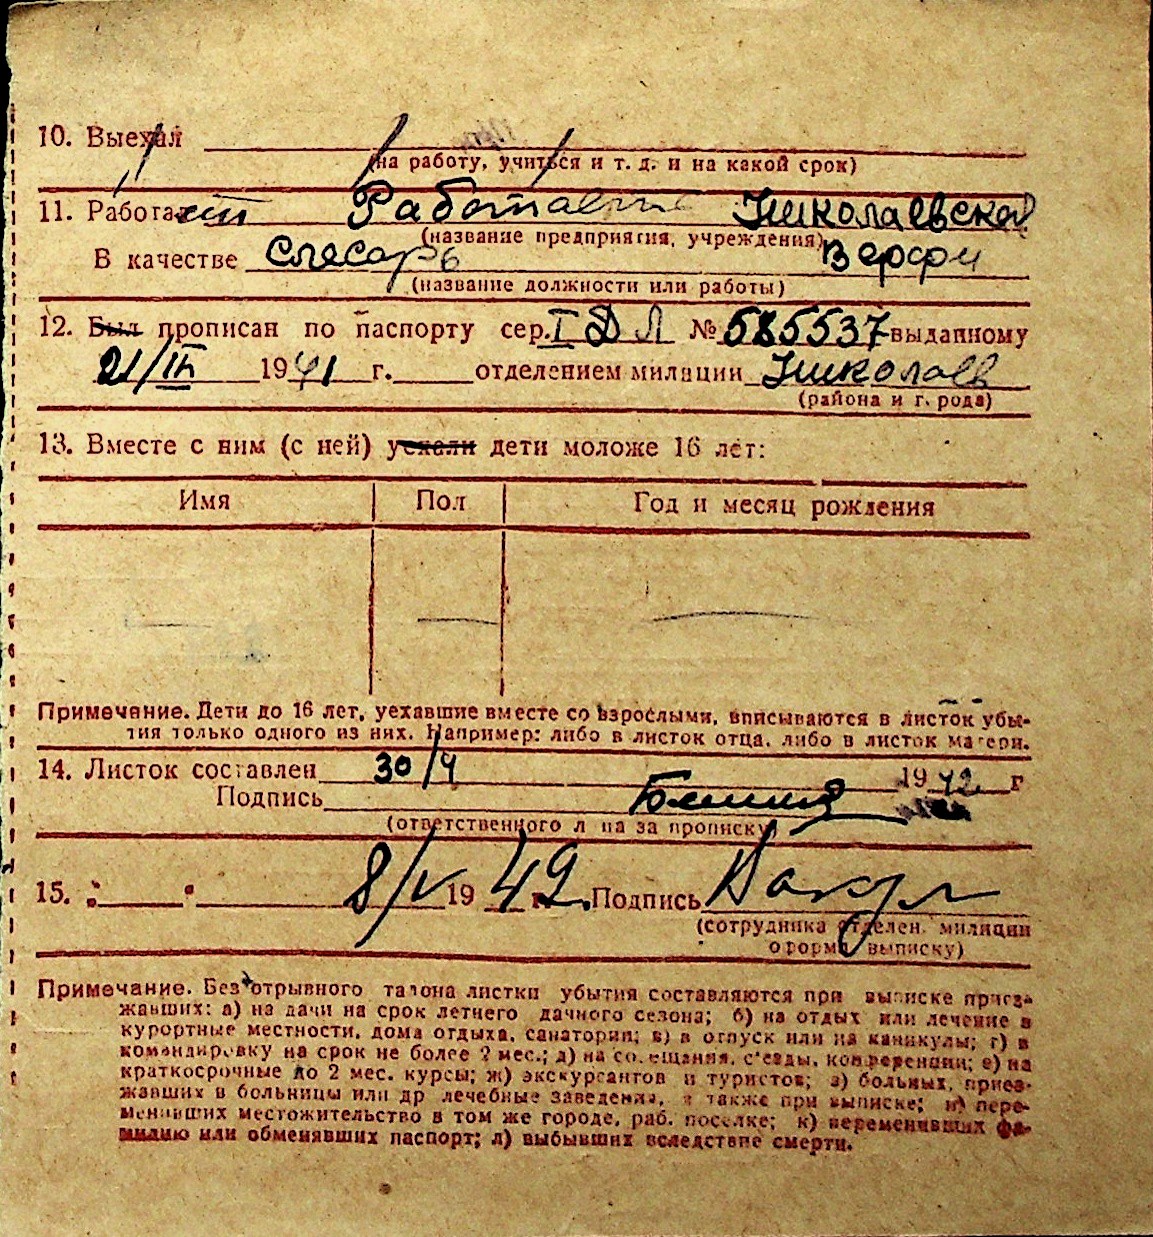 10. Выехал
(на работу, учиться и т. д. и на какой срок)
11. Работает Работает Николаевской
(название предприятия, учреждения)
В качестве слесарь Верфи
(название должности или работы)
12. Был прописан по паспорту сер. I ДЛ № 585537 выданному
21/III 1941 г. отделением милации Николаев
(района и г. рода)
13. Вместе с ним (с ней) уехали дети моложе 16 лет:
Имя Пол Год и месяц рождения
Примечание. Дети до 16 лет, уехавшие вместе со взрослыми, вписываются в листок убы-
тия только одного из них. Например: либо в листок отца, либо в листок матери.
14. Листок составлен 30/4 1942 г
Подпись
(ответственного л ца за прописку)
15. 8/V 1942 г. Подпись
(сотрудника отделен. милиции
оформ. выписку)
Примечание. Без отрывного талона листки убытия составляются при выписке приез-
жавших: а) на дачи на срок летнего дачного сезона; б) на отдых или лечение в
курортные местности, дома отдыха, санатории; в) в отпуск или на каникулы; г) в
командировку на срок не более 2 мес.; д) на совещания, съезды, конференции; е) на
краткосрочные до 2 мес. курсы; ж) экскурсантов и туристов; з) больных, приез-
жавших в больницы или др лечебные заведения, а также при выписке; и) пере-
менивших местожительство в том же городе, раб. поселке; к) переменивших фа-
милию или обменявших паспорт; л) выбывших вследствие смерти.